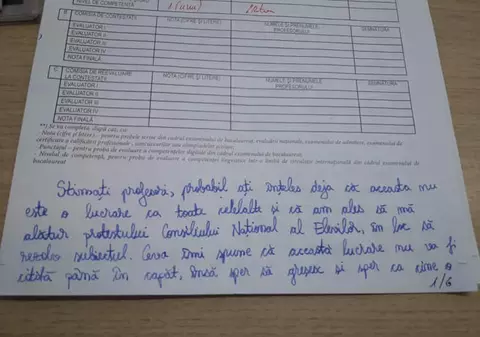 NIVEL DE COMPETENȚĂ
B COMISIA DE CONTESTAȚII NOTA (CIFRE ȘI LITERE) NUMELE ȘI PRENUMELE PROFESORULUI SEMNĂTURA
EVALUATOR I
EVALUATOR II
EVALUATOR III
EVALUATOR IV
NOTA FINALĂ
C COMISIA DE REEVALUIRE LA CONTESTAȚII NOTA (CIFRE ȘI LITERE) NUMELE ȘI PRENUMELE PROFESORULUI SEMNĂTURA
EVALUATOR I
EVALUATOR II
EVALUATOR III
EVALUATOR IV
NOTA FINALĂ
**) Se va completa, după caz, cu:
- Nota (cifre și litere) - pentru probele scrise din cadrul examenului de bacalaureat, evaluării naționale, examenului de admitere, examenului de
certificare a calificării profesionale, concursurilor sau olimpiadelor școlare;
- Punctajul - pentru proba de evaluare a competențelor digitale din cadrul examenului de bacalaureat
- Nivelul de competență, pentru proba de evaluare a competenței lingvistice într-o limbă de circulație internațională din cadrul examenului de
bacalaureat
Stimați profesori, probabil ați înțeles deja că aceasta nu
este o lucrare ca toate celelalte și că am ales să mă
alătur protestului Consiliului Național al Elevilor, în loc să
rezolv subiectul. Ceva îmi spune că această lucrare nu va fi
citită până în capăt, însă sper să greșesc și sper ca cine o
1/6